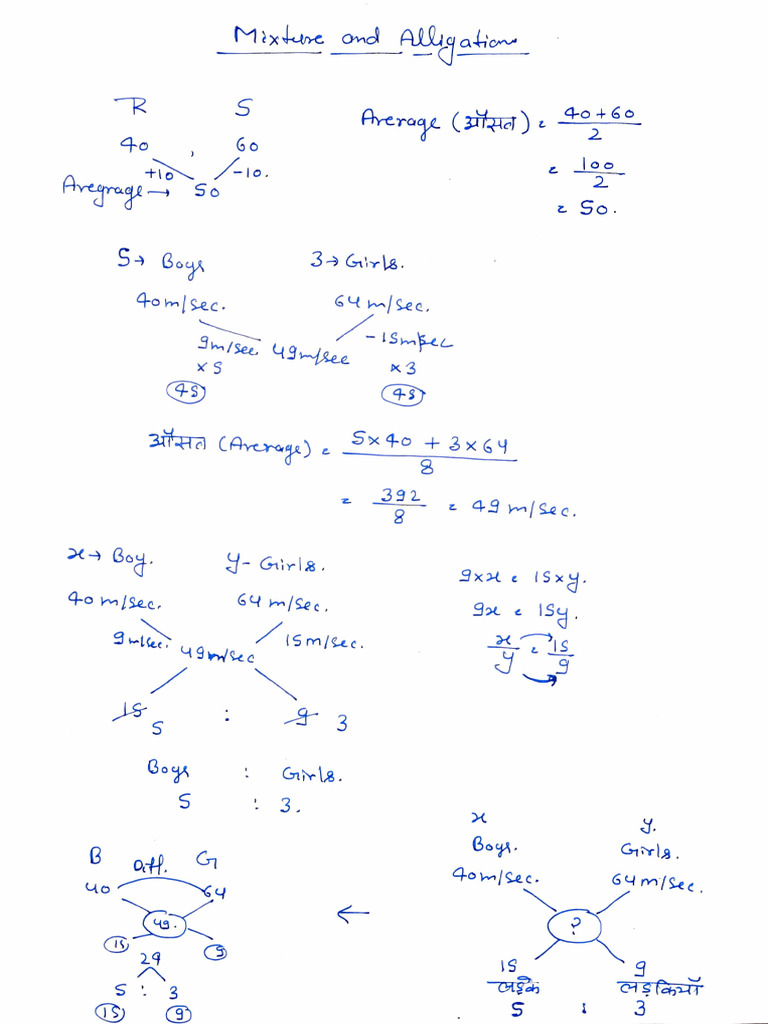 Mixture and Alligation
R S
40 , 60
+10 -10.
Avegrage → 50
Average (औसत) = 40+60
2
= 100
2
= 50.
5→ Boys 3→ Girls.
40m/sec. 64m/sec.
9m/sec 49m/sec -15m/sec
×5 ×3
45 45
औसत (Average) = 5×40 + 3×64
8
= 392 = 49m/sec.
8
x→ Boy. y- Girls.
40m/sec. 64m/sec.
9m/sec. 49m/sec 15m/sec.
15 : 9
5 3
Boys : Girls.
5 : 3.
9×x = 15×y.
9x = 15y.
x = 15
y 9
B Diff. G
40 64
49.
15 9
24
5 : 3
15 9
←
x y.
Boys. Girls.
40m/sec. 64m/sec.
?
15 9
लड़के लड़कियाँ
5 : 3